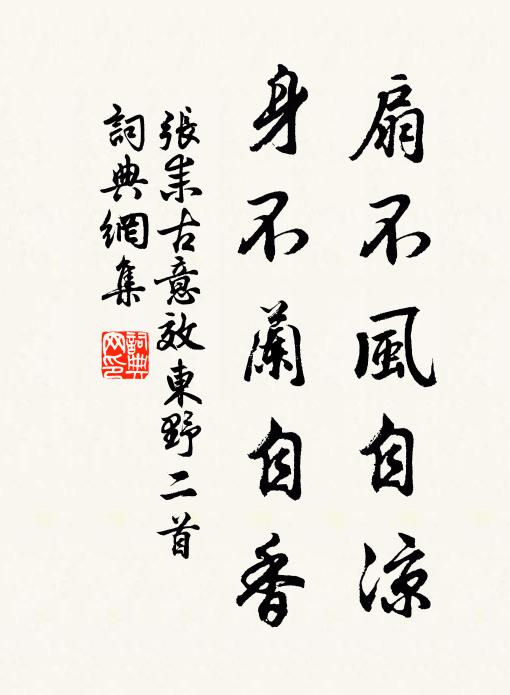 扇不風自涼
身不蘭自香
張耒古意效東野二首
詞典網集
詞典網印